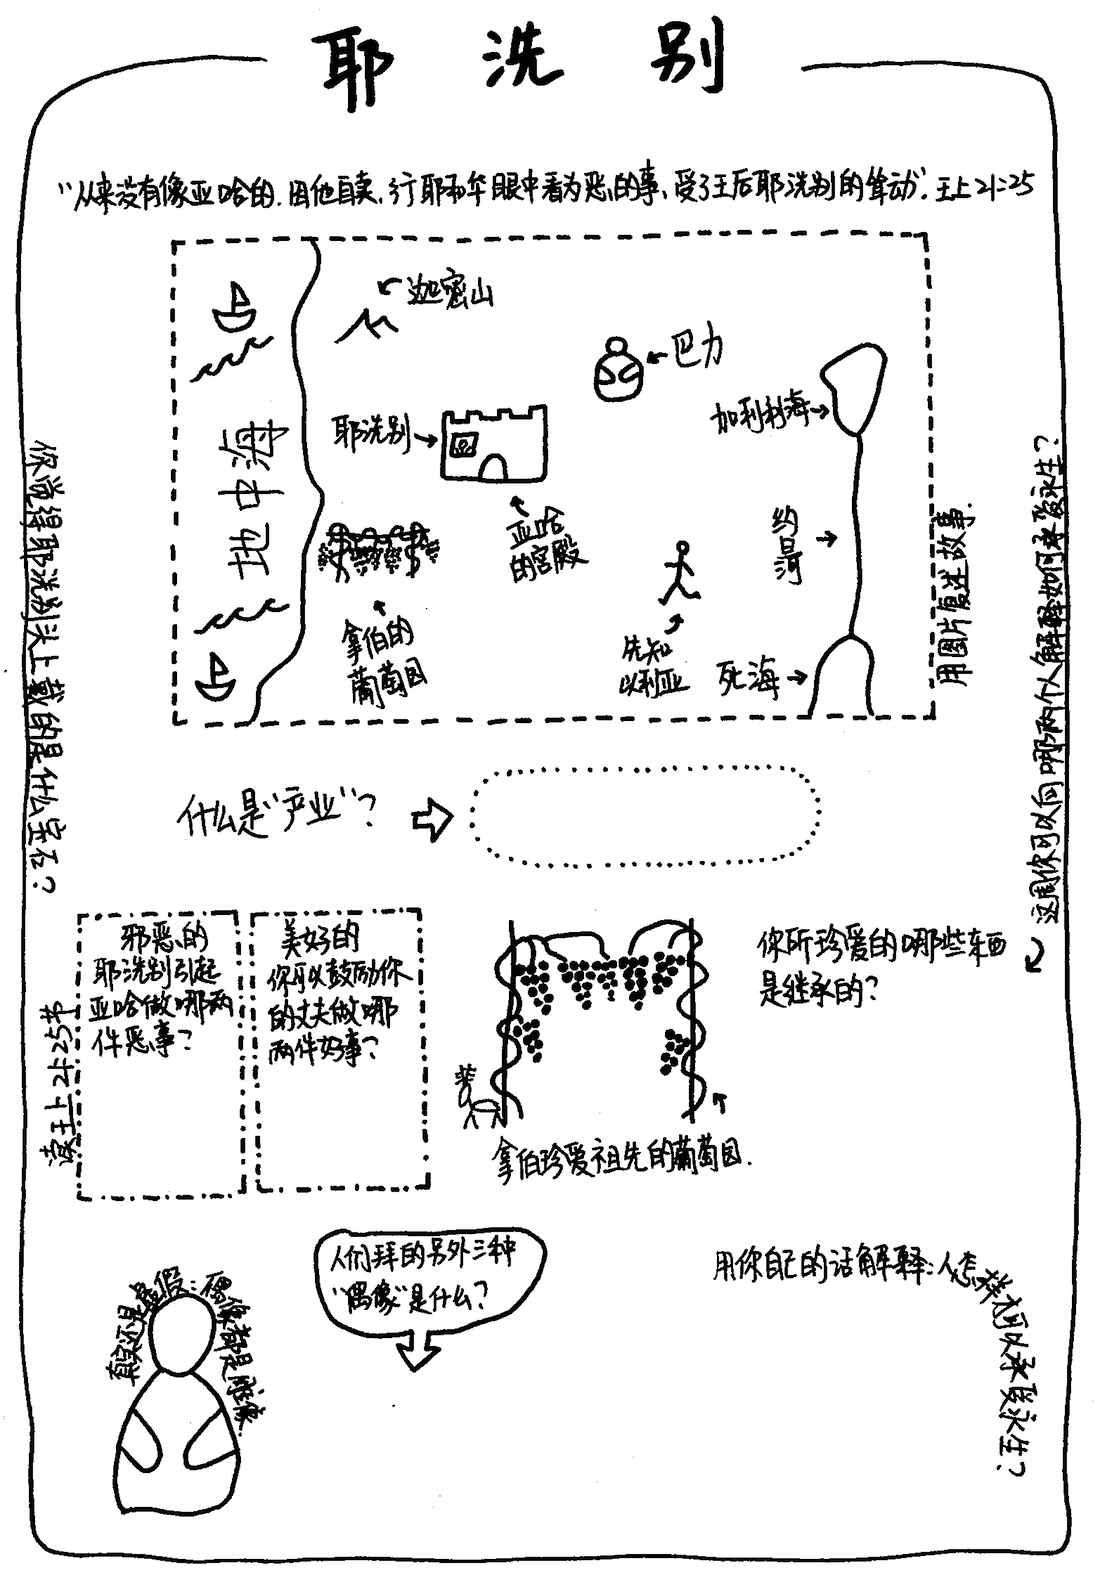 耶洗别
“从来没有像亚哈的.因他自卖,行耶和华眼中看为恶的事,受了王后耶洗别的耸动”.王上21:25
迦密山
巴力
加利利海
耶洗别
地中海
亚哈
的宫殿
约旦河
拿伯的
葡萄园
先知
以利亚
死海
用图片复述故事.
你觉得耶洗别头上戴的是什么宝石?
这周你可以向哪两个人解释如何承受永生?
什么是“产业”?
读王上21:25节
邪恶的
耶洗别引起
亚哈做哪两
件恶事?
美好的
你可以鼓励你
的丈夫做哪
两件好事?
你所珍爱的哪些东西
是继承的?
拿伯珍爱祖先的葡萄园.
真实还是虚假:偶像都是雕像.
人们拜的另外三种
“偶像”是什么?
用你自己的话解释:人怎样才可以承受永生?